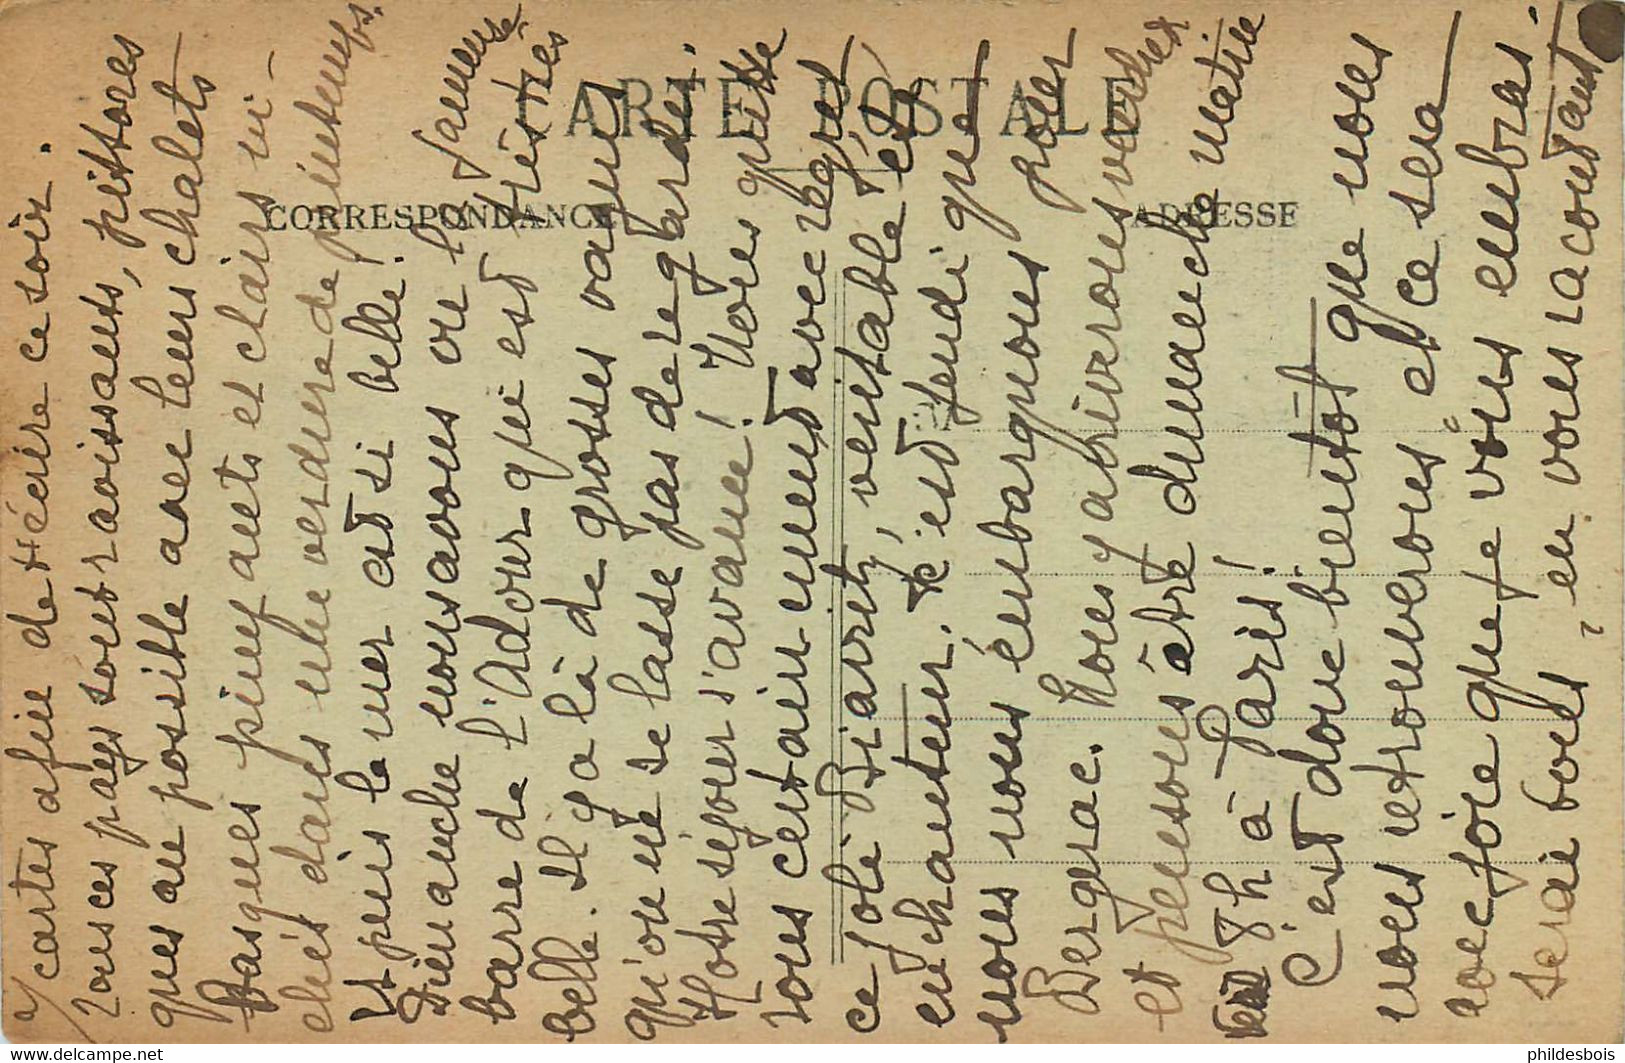 CARTE POSTALE
CORRESPONDANCE
ADRESSE
cartes afin de t'écrire ce soir.
Tous ces pays sont ravissants, pittores
ques au possible avec leurs chalets
basques pimpants et clairs ni-
chés dans une verdure de printemps.
Et puis la mer est si belle!
Dimanche nous avons vu la fameuse
barre de l'Adour qui est très très
belle. Il y a là de grosses vagues
qu'on ne se lasse pas de regarder.
Notre séjour s'avance! Nous quitte
rons certainement avec regret
ce joli Biarritz, véritable lieu
enchanteur. C'est jeudi que
nous nous embarquons pour
Bergerac. Nous y arriverons vers
et pensons être dimanche matin
8h à Paris!
C'est donc bientôt que nous
nous retrouverons et ce sera
avec joie que je vous embras-
serai tous, en vous racontant
phildesbois